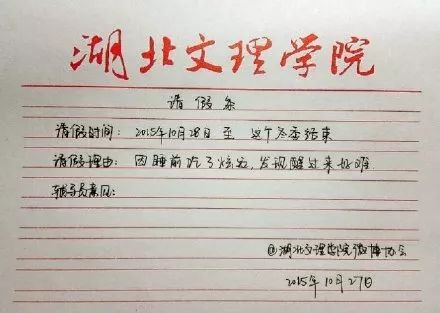 湖北文理学院
请假条
请假时间：2015年10月28日至 这个冬季结束
请假理由：因睡前吃了炫迈，发现醒过来好难
辅导员意见：
@湖北文理学院微博协会
2015年10月27日